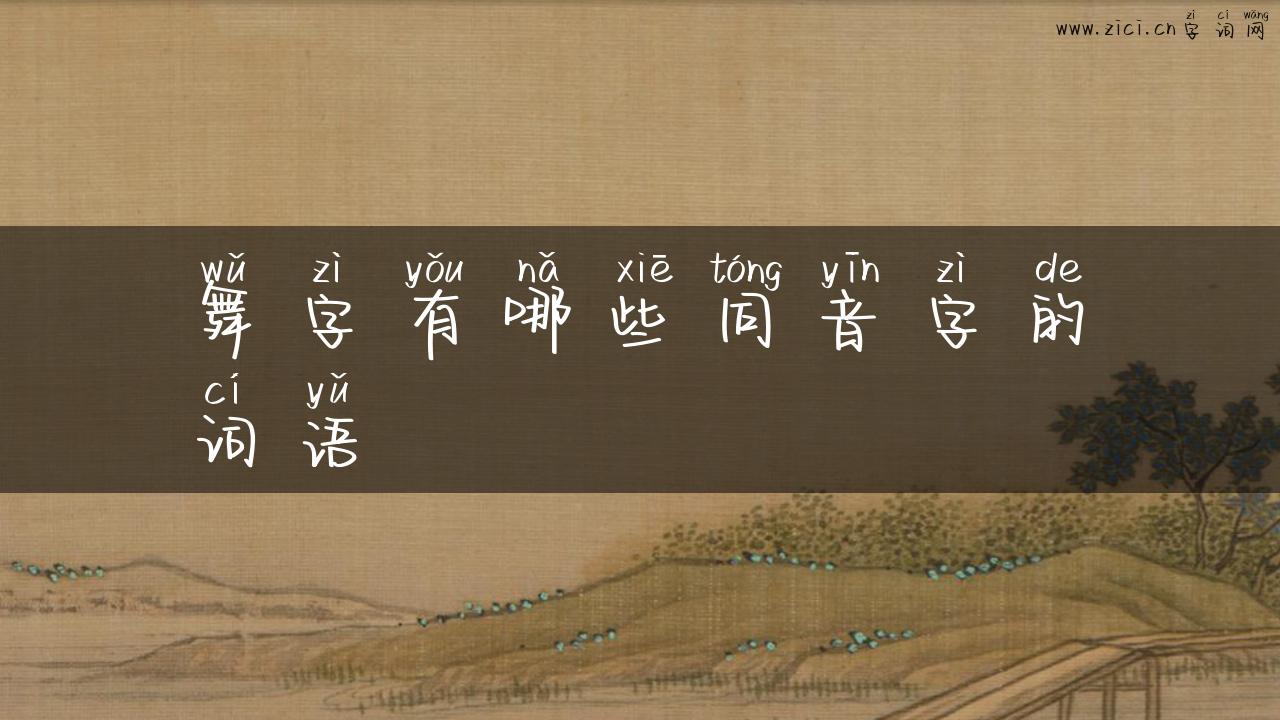 zì cí wǎng
www.zici.cn 字词网
wǔ zì yǒu nǎ xiē tóng yīn zì de
舞字有哪些同音字的
cí yǔ
词语